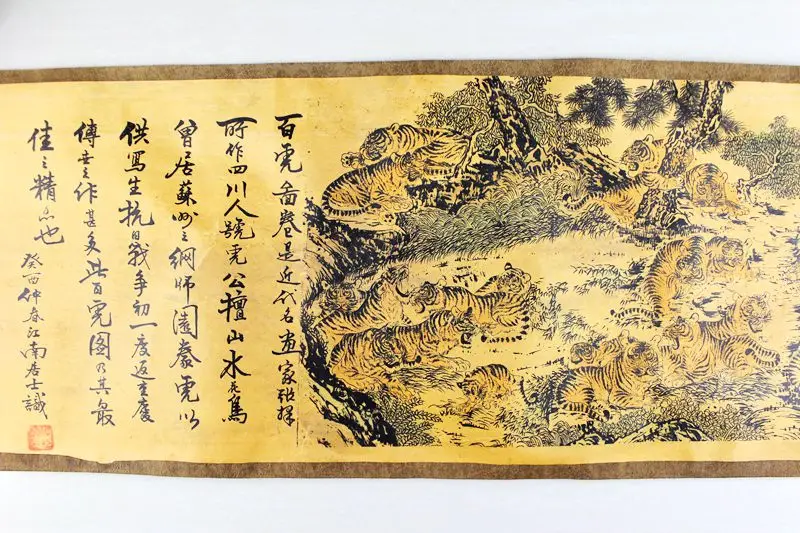 百虎啚卷是近代名画家擇
所作四川人號虎公擅山水花鳥
曾居蘇州之綱師園豢虎以
供寫生抗日戰争初一度返重慶
傳世之作甚多此百虎图乃其最
佳之精品也
癸酉仲春江南居士識